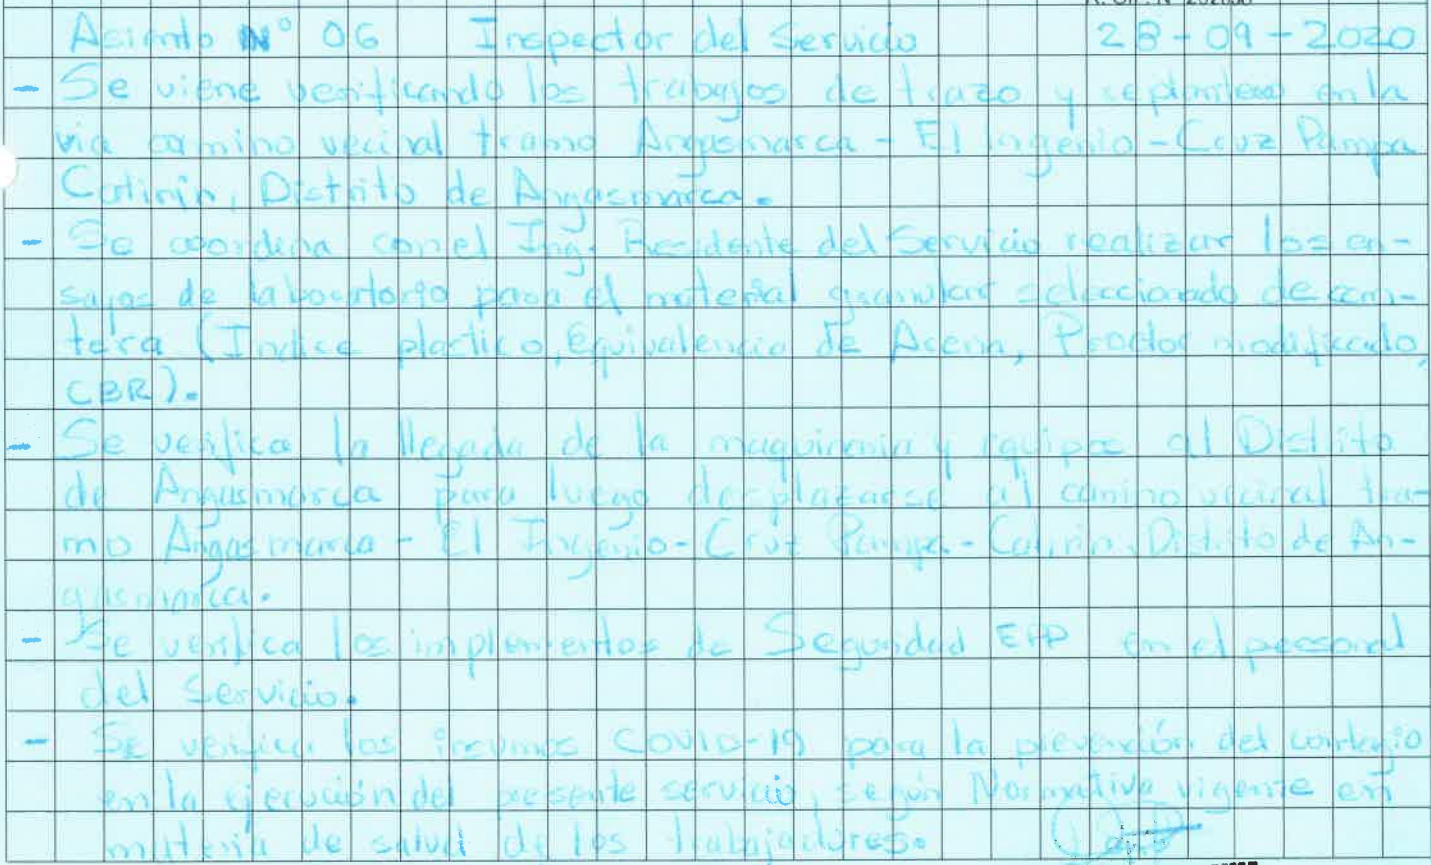 Asiento N° 06 Inspector del Servicio 28-09-2020
- Se viene verificando los trabajos de trazo y replanteo en la
via camino vecinal tramo Angasmarca - El Ingenio - Cruz Pampa
Catirin, Distrito de Angasmarca.
- Se coordina con el Ing. Residente del Servicio realizar los en-
sayos de laboratorio para el material granular seleccionado de can-
tera (Indice plastico, Equivalencia de Arena, Proctor modificado,
CBR).
- Se verifica la llegada de la maquinaria y equipos al Distrito
de Angasmarca para luego desplazarse al camino vecinal tra-
mo Angasmarca - El Ingenio - Cruz Pampa - Catirin, Distrito de An-
gasmarca.
- Se verifica los implementos de Seguridad EPP en el personal
del Servicio.
- Se verifica los insumos COVID-19 para la prevención del contagio
en la ejecución del presente servicio, según Normativa vigente en
materia de salud de los trabajadores.